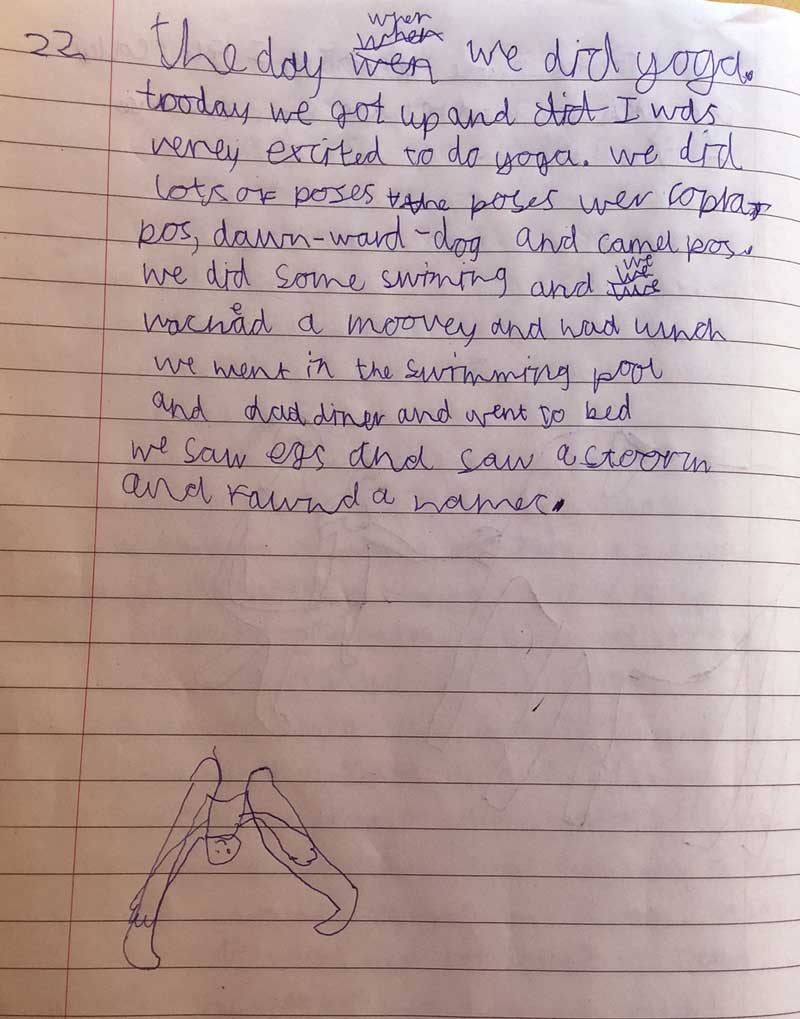 22. the day when we did yoga.
tooday we got up and did I was
verey excited to do yoga. we did
lots of poses the poses wer copra
pos, dawn-ward-dog and camel pos.
we did some swiming and we
wached a moovey and had lunch
we went in the swimming pool
and dad diner and went to bed
we saw egs and saw a stoorm
and fawnd a